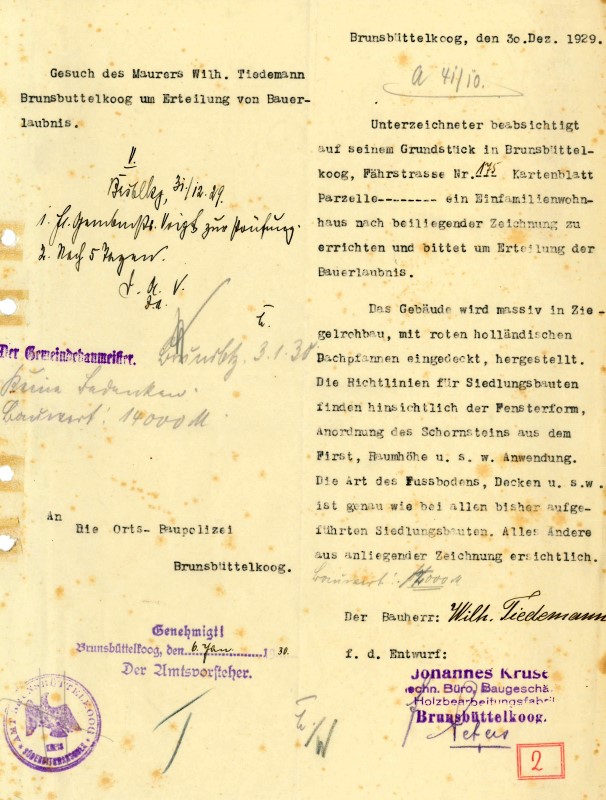 Gesuch des Maurers Wilh. Tiedemann
Brunsbuttelkoog um Erteilung von Bauer-
laubnis.
V.
31/12.29.
zur Prüfung.
2. Nach 5 Tagen.
D. A. V.
Der Gemeindebaumeister.
3.1.30.
Keine Bedenken.
Bauwert: 14000 M.
An
Die Orts- Baupolizei
Brunsbüttelkoog.
Genehmigt!
Brunsbüttelkoog, den 6. Jan. 1930.
Der Amtsvorsteher.
AMT BRUNSBÜTTELKOOG
KREIS
SÜDERDITHMARSCHEN
Brunsbüttelkoog, den 30.Dez. 1929.
A 41/10.
Unterzeichneter beabsichtigt
auf seinem Grundstück in Brunsbüttel-
koog, Fährstrasse Nr. 175 Kartenblatt
Parzelle-------- ein Einfamilienwohn-
haus nach beiliegender Zeichnung zu
errichten und bittet um Erteilung der
Bauerlaubnis.
Das Gebäude wird massiv in Zie -
gelrohbau, mit roten holländischen
Dachpfannen eingedeckt, hergestellt.
Die Richtlinien für Siedlungsbauten
finden hinsichtlich der Fensterform,
Anordnung des Schornsteins aus dem
First, Raumhöhe u. s. w. Anwendung.
Die Art des Fussbodens, Decken u. s.w.
ist genau wie bei allen bisher aufge-
führten Siedlungsbauten. Alles Andere
aus anliegender Zeichnung ersichtlich.
Bauwert: 14000 M
Der Bauherr: Wilh. Tiedemann
f. d. Entwurf:
Johannes Kruse
echn. Büro, Baugeschä.
Holzbearbeitungsfabri
Brunsbüttelkoog.
Peters
2